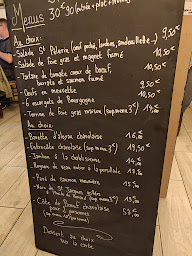 Menus 30€90 (entrée + plat +
Au choix:
- Salade St Pélerin (oeuf poché, lardons, andouillette...) 9,50€
- Salade de foie gras et magret fumé 10,50€
- Tartare de tomate coeur de boeuf,
burrata et saumon fumé 10,50€
- Oeufs en meurette 9,50€
- 6 escargots de Bourgogne 10,50€
- Terrine de foie gras maison (sup menu 3€) 14,50€
Au choix:
- Bavette d'aloyau charolaise 16,50€
- Entrecôte charolaise (sup menu 3€) 19,50€
- Jambon à la chablisienne 14,50€
- Rognon de veau entier à la
- Pavé de saumon
- Noix de St Jacques
(sup menu
- Côte de Boeuf charolaise
pour 2 personnes 59,00€
(sup menu
Dessert au choix
sur la carte